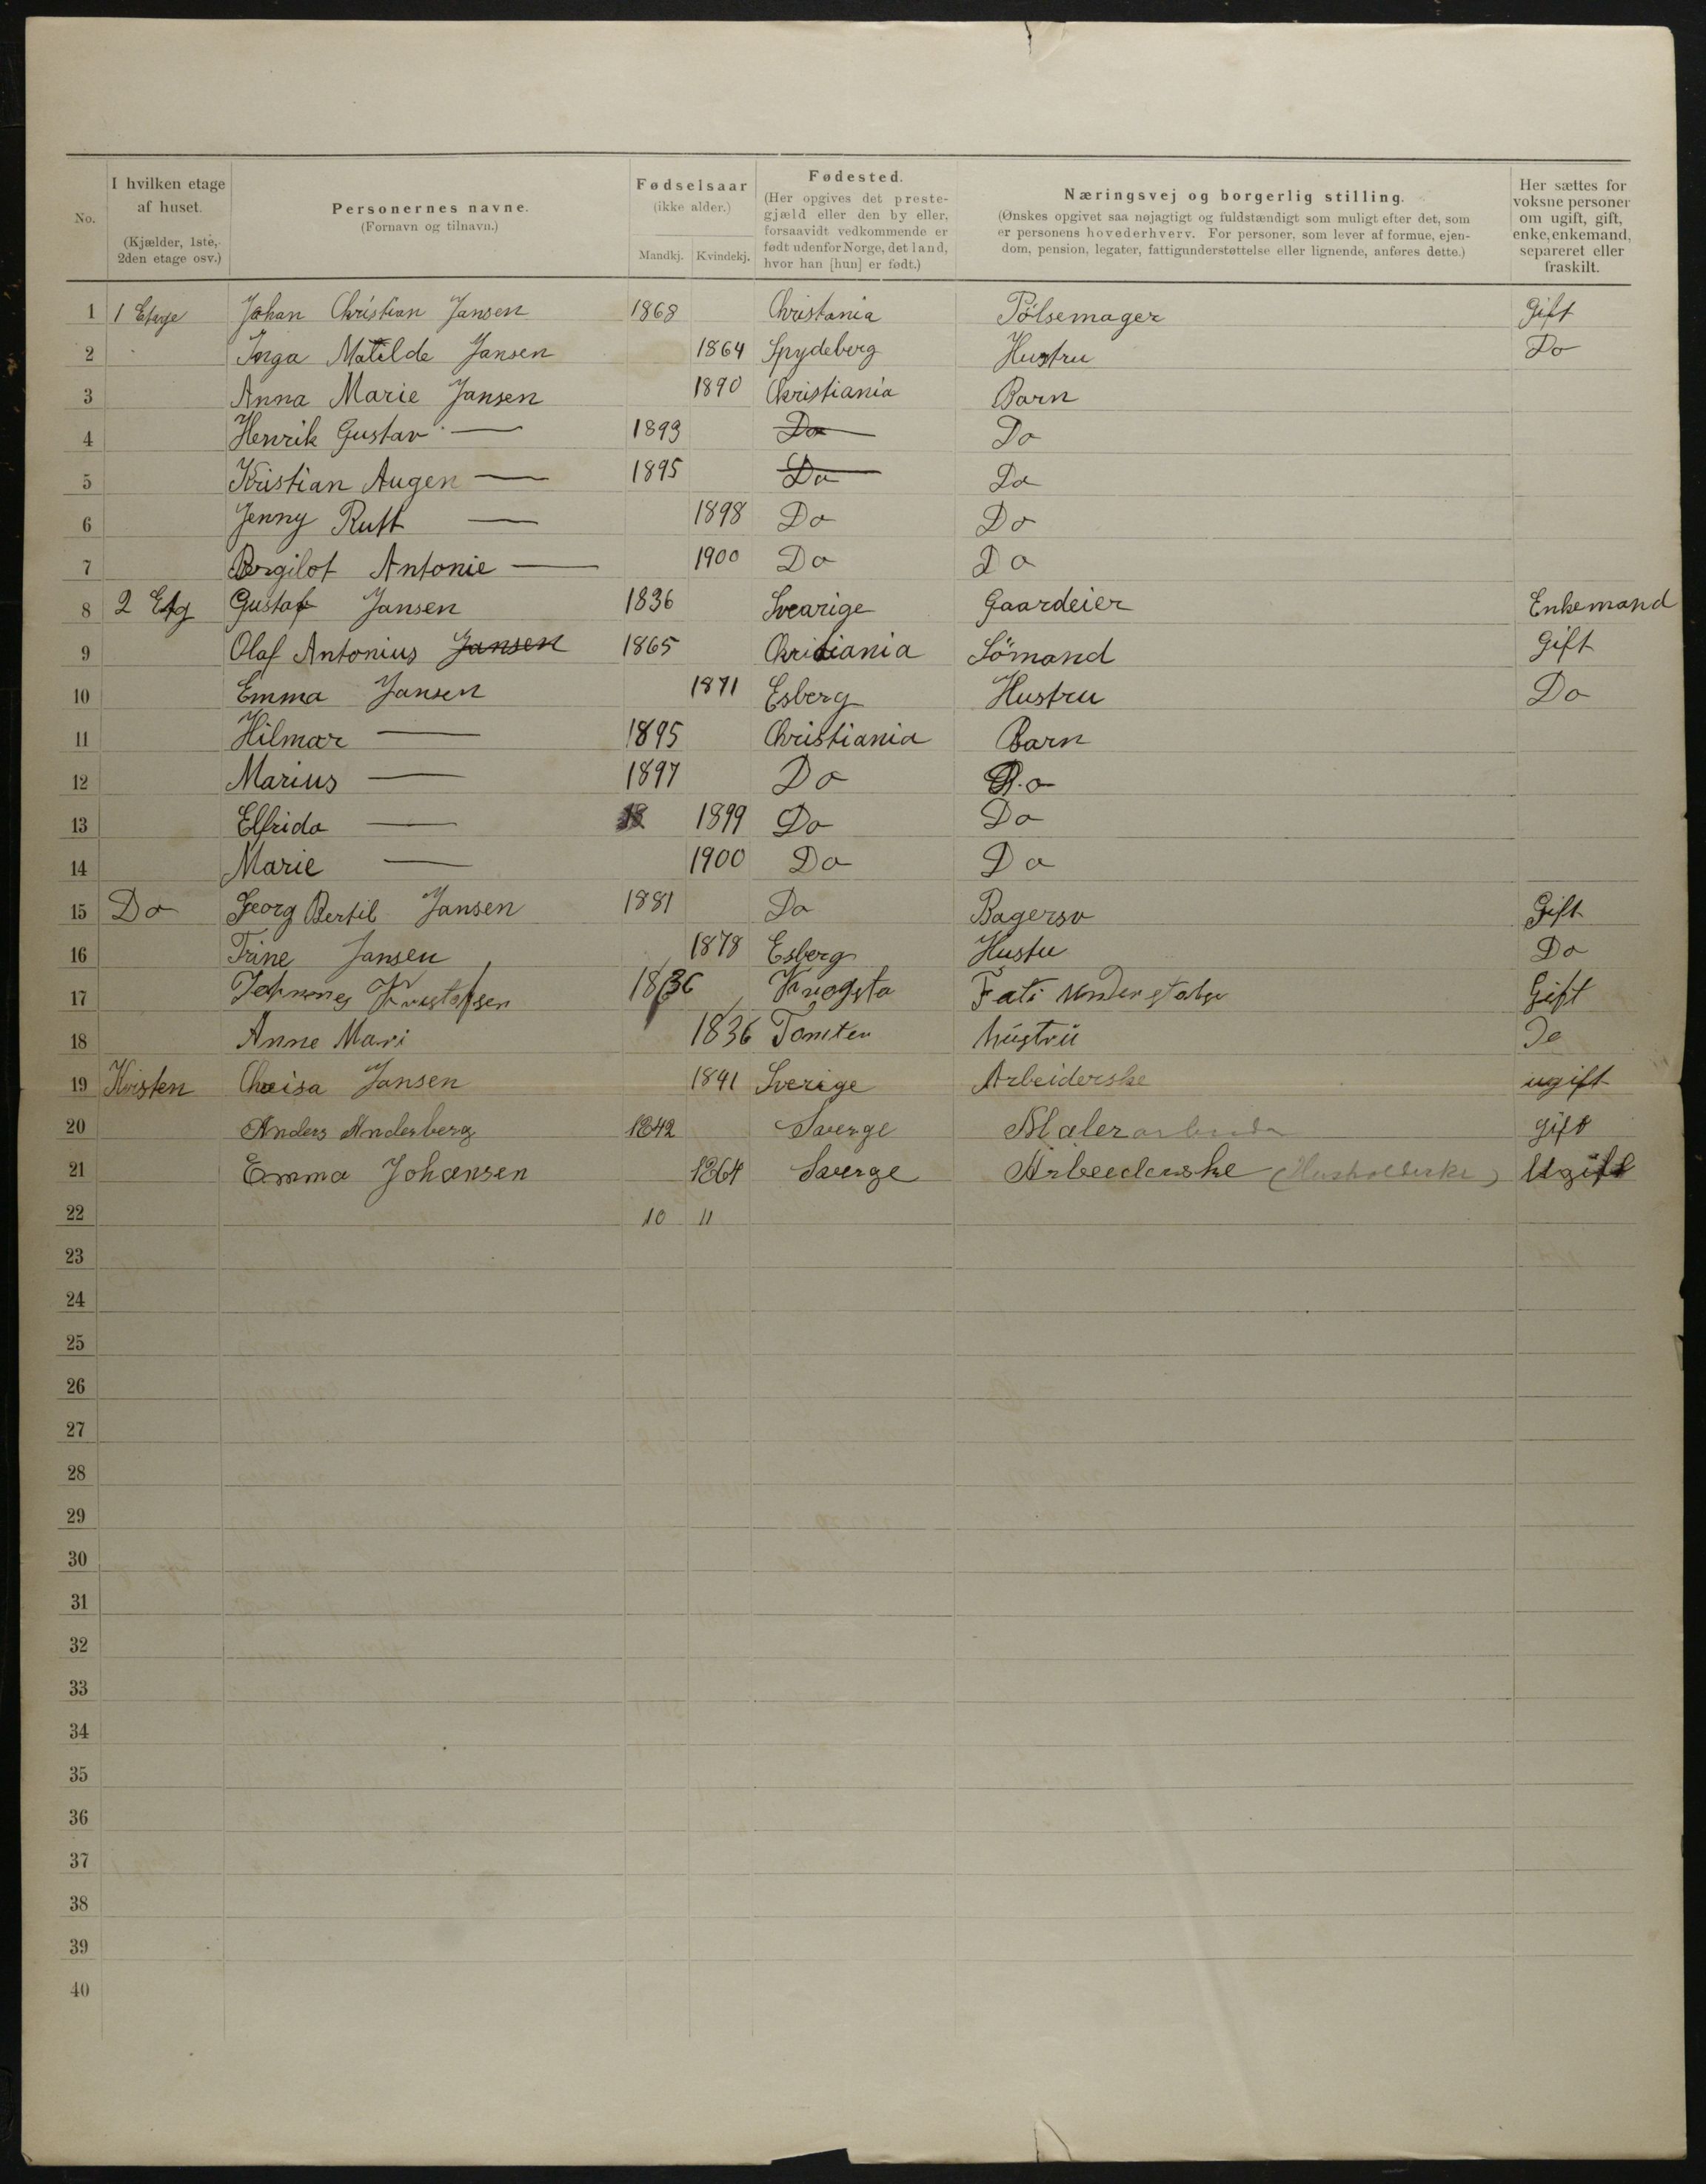 No.
I hvilken etage
af huset.
(Kjælder, 1ste,
2den etage osv.)
Personernes navne.
(Fornavn og tilnavn.)
Fødselsaar
(ikke alder.)
Mandkj. Kvindekj.
Fødested.
(Her opgives det preste-
gjæld eller den by eller,
forsaavidt vedkommende er
født udenfor Norge, det land,
hvor han [hun] er født.)
Næringsvej og borgerlig stilling.
(Ønskes opgivet saa nøjagtigt og fuldstændigt som muligt efter det, som
er personens hovederhverv. For personer, som lever af formue, ejen-
dom, pension, legater, fattigunderstøttelse eller lignende, anføres dette.)
Her sættes for
voksne personer
om ugift, gift,
enke, enkemand,
separeret eller
fraskilt.
1 1 Etage Johan Christian Jansen 1868 Christania Pölsemager Gift
2 Inga Matilde Jansen 1864 Spydeberg Hustru Do
3 Anna Marie Jansen 1890 Christiania Barn
4 Henrik Gustav — 1893 Do Do
5 Kristian Augen — 1895 Do Do
6 Jenny Rutt — 1898 Do Do
7 Bergilot Antonie — 1900 Do Do
8 2 Etg Gustaf Jansen 1836 Svearige Gaardeier Enkemand
9 Olaf Antonius Jansen 1865 Christiania Sömand Gift
10 Emma Jansen 1871 Esberg Hustru Do
11 Hilmar — 1895 Christiania Barn
12 Marius — 1897 Do Do
13 Elfrida — 18 1899 Do Do
14 Marie — 1900 Do Do
15 Do Georg Bertil Jansen 1881 Do Bagersv Gift
16 Trine Jansen 1878 Esberg Hustu Do
17 Johannes Kristofsen 1836 Fati Gift
18 Anne Mari 1836 Tomter hústrú Do
19 Kvisten Jansen 1841 Sverige Arbeiderske ugift
20 Anders Anderberg 1842 Sverge Maler gift
21 Emma Johansen 1864 Sverge Arbeederske (Husholderske) Ugift
22 10 11
23
24
25
26
27
28
29
30
31
32
33
34
35
36
37
38
39
40